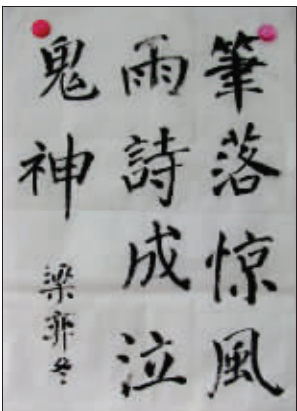 筆落惊風
雨詩成泣
鬼神
梁郭